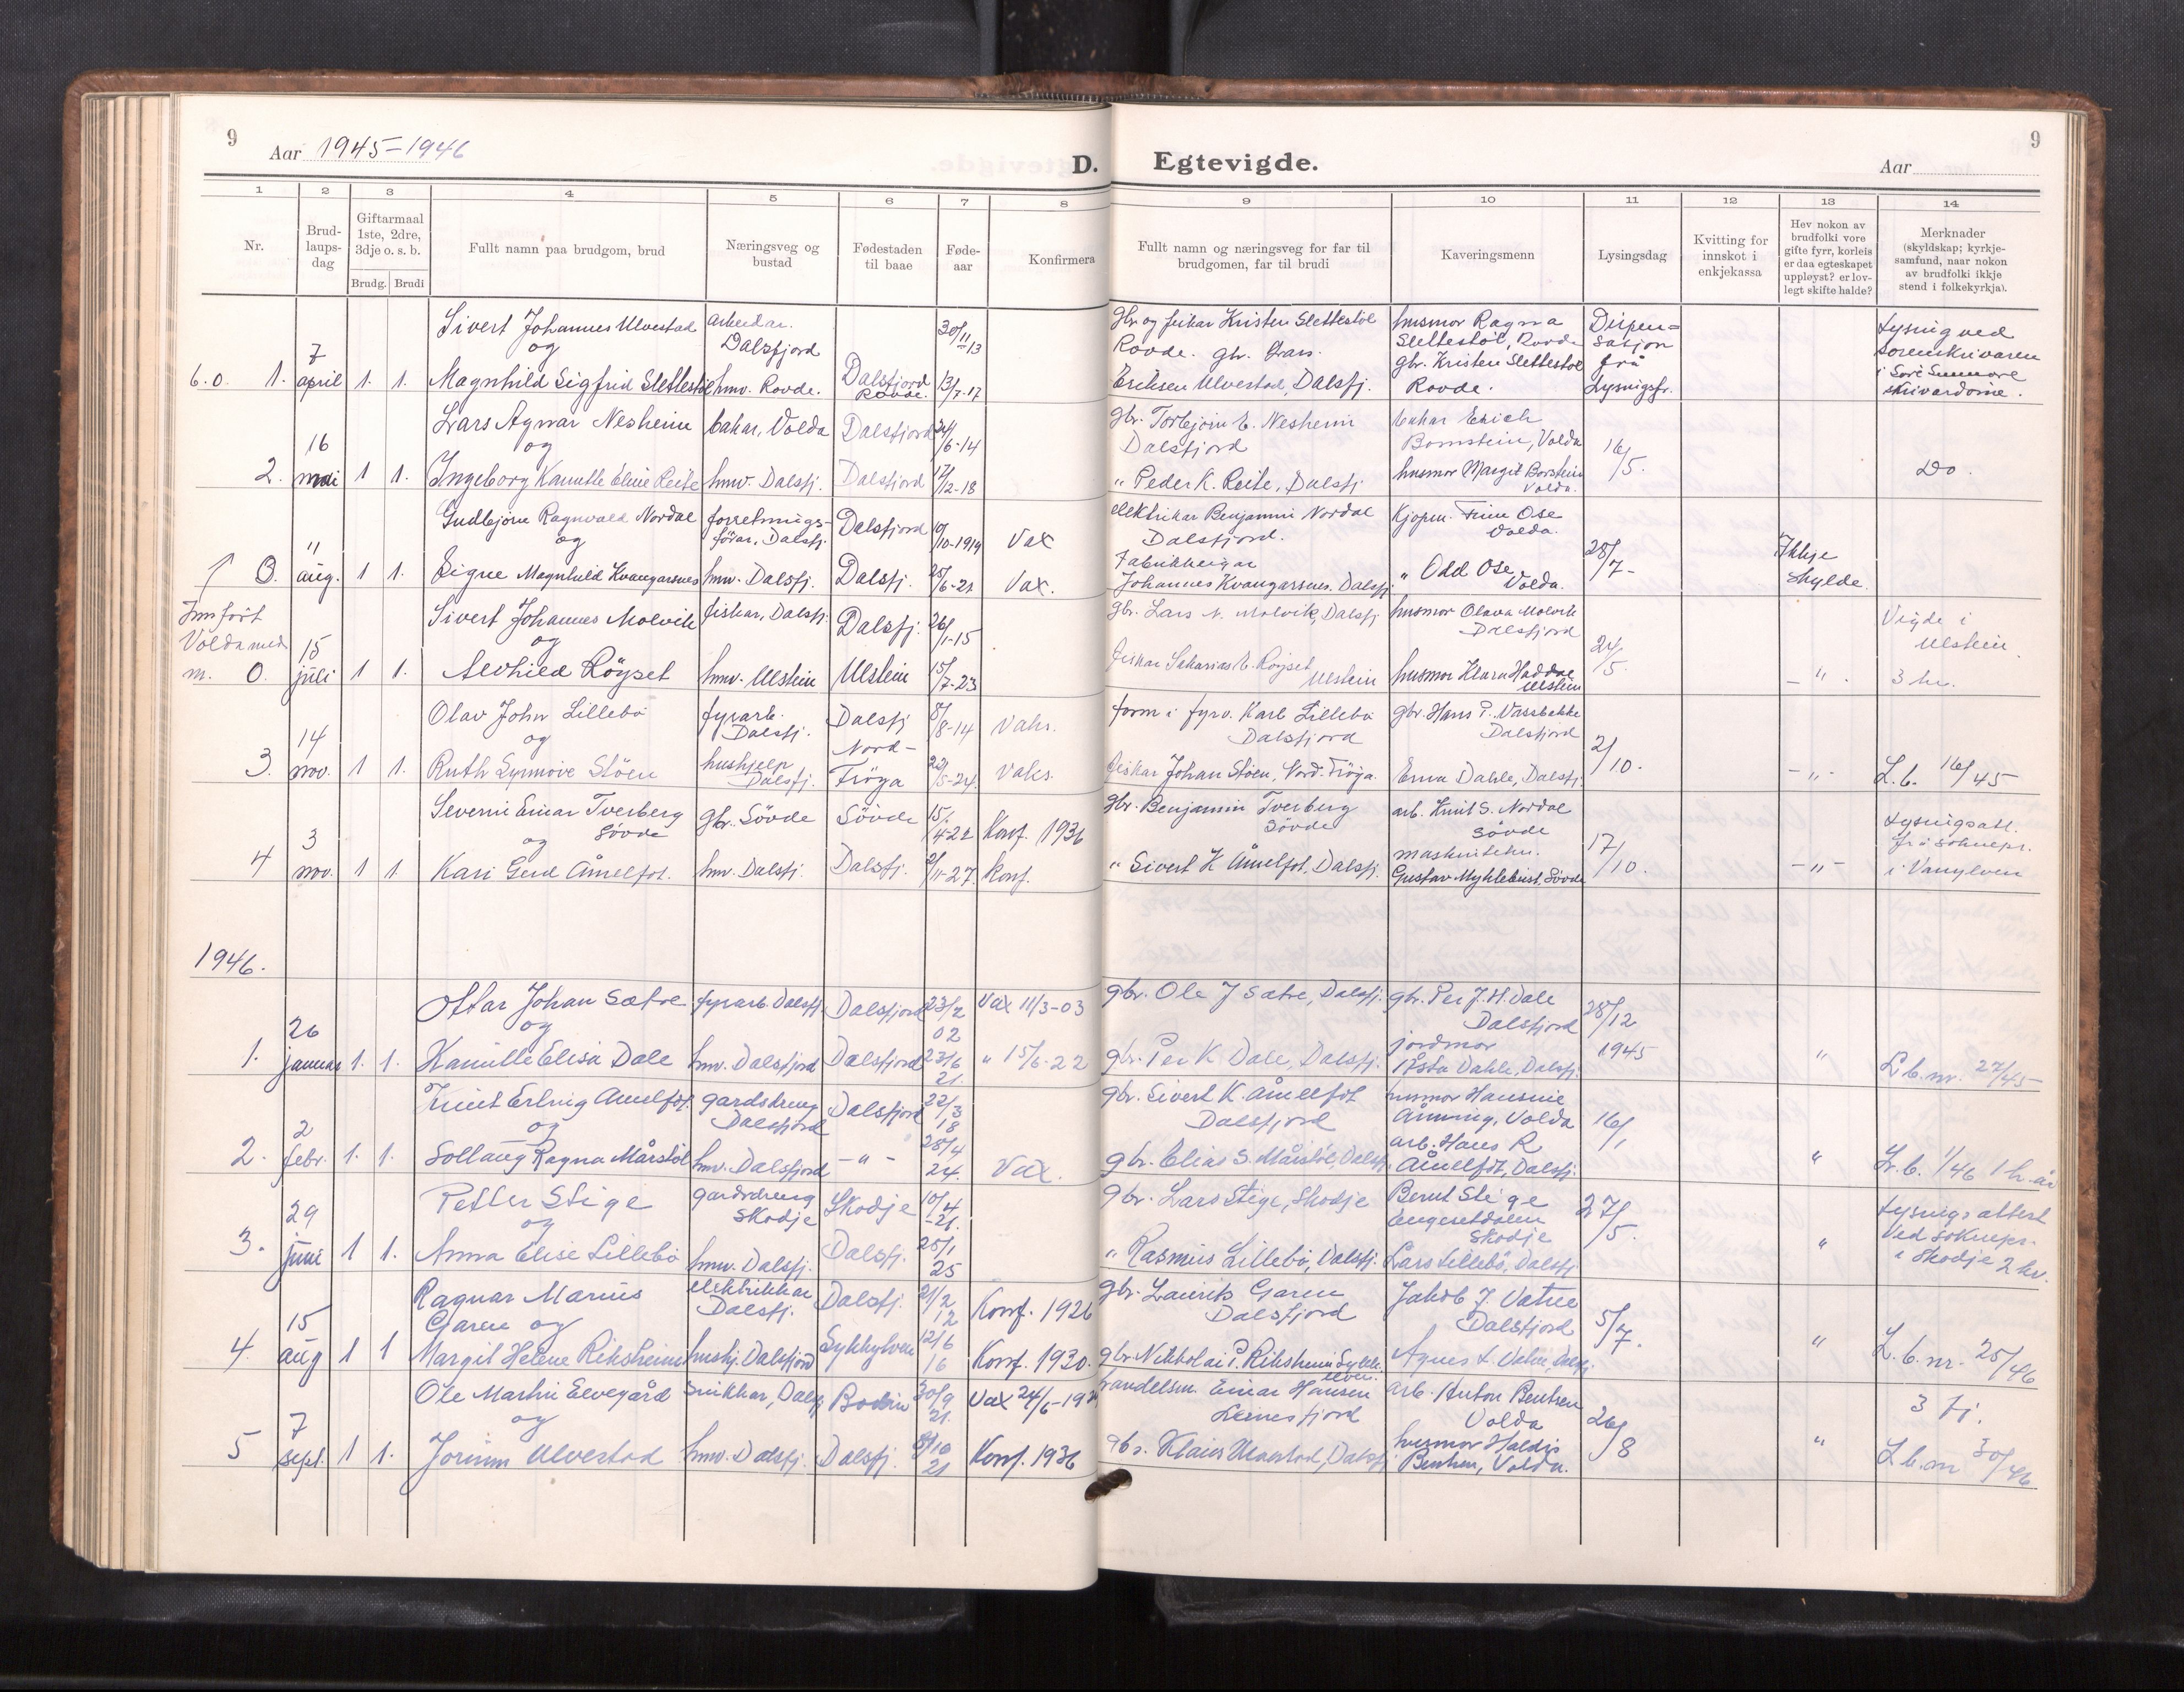 9
Aar 1945-1946
D. Egtevigde.
Aar
9
1 2 3 4 5 6 7 8 9 10 11 12 13 14
Nr.
Brud-
laups-
dag
Giftarmaal
1ste, 2dre,
3dje o. s. b.
Brudg. Brudi
Fullt namn paa brudgom, brud
Næringsveg og
bustad
Fødestaden
til baae
Føde-
aar
Konfirmera
Fullt namn og næringsveg for far til
brudgomen, far til brudi
Kaveringsmenn
Lysingsdag
Kvitting for
innskot i
enkjekassa
Hev nokon av
brudfolki vore
gifte fyrr, korleis
er daa egteskapet
uppløyst? er lov-
legt skifte halde?
Merknader
(skyldskap; kyrkje-
samfund, naar nokon
av brudfolki ikkje
stend i folkekyrkja).
Sivert Johannes Ulvestad arbeidar. 30/11-13 Gbr og fiskar Kristen Slettestøl husmor Ragna Dispen-
7 og Dalsfjord Rovde. gbr. Lars Slettestøl, Rovde sasjon Lysing ved
6.0. 1. april 1. 1. Magnhild Sigfrid Slettestøl hmv. Rovde. Dalsfjord Rovde. 13/7-17 Eriksen Ulvestad, Dalsfj. gbr. Kristen Slettestøl Rovde. frå Lysingsfr. sorenskrivaren
i Søre Sunnmøre
Lars Agnar Nesheim bakar, Volda Dalsfjord 24/6-14 gbr. Torbjørn E. Nesheim bakar Erich
16 og Dalsfjord Bornstein, Volda 16/5.
2. mai 1 1. Ingeborg Kamille Eline Reite hmv. Dalsfj. Dalsfjord 17/12-18 " Peder K. Reite, Dalsfj husmor Margit Borstein Volda. Do.
Gudbjørn Ragnvald Nordal forretnings- Dalsfjord 10/10-1919 Vax elektrikar Benjamin Nordal Kjøpm. Finn Ose
11 og førar, Dalsfj. Dalsfjord. Volda. 28/7- Ikkje
0. aug. 1 1. Signe Magnhild Kvangarsnes hmv. Dalsfj. Dalsfj. 25/6-21 Vax. Fabrikkeigar Johannes Kvangarsnes. Dalsfj " Odd Ose, Volda. skylde.
Innført
Volda med
m.
Sivert Johannes Molvik fiskar, Dalsfj. Dalsfj. 26/1-15 gbr. Lars N. Molvik, Dalsfj husmor Olava Molvik Vigde i
15 og Dalsfjord 24/5. Ulstein.
0. juli 1 1. Alvhild Röyset hmv. Ulstein Ulstein 15/7-23 fiskar Sakarias E. Röyset Ulstein husmor Klara Haddal Ulstein - " - 3 hr.
Olav John Lillebö fyrarb. Dalsfj 8/8-14 Vaks. form i fyrv. Karl Lillebö gbr. Hans P. Vassbakke
14 og Dalsfj. Nord- Dalsfjord Dalsfjord 2/10.
3. nov. 1 1. Ruth Synnöve Stöen hushjelp Dalsfj. Fröya 22/5-24. Vaks. fiskar Johan Stöen, Nord-Fröya. Erna Dahle, Dalsfj. - " - L.b. 16/45
Severin Einar Tverberg gbr. Sövde Sövde 15/4-22 Konf. 1936 gbr. Benjamin Tverberg arb. Knut S. Nordal Lysingsatt.
3 og Sövde Sövde Sövde 17/10. frå soknepr.
4 nov. 1 1 Kari Gerd Åmelfot. hmv. Dalsfj. Dalsfj. 2/11-27. Konf. " Sivert K Åmelfot, Dalsfj. maskintekn. Gustav Myklebust, Sövde - " - i Vanylven
1946.
Ottar Johan Sætre fyrarb. Dalsfj. Dalsfjord 23/2 02 Vax 11/3-03 gbr. Ole J Sætre, Dalsfj. gbr. Per J. H. Dale 28/12
26 og Dalsfjord 1945
1. januar 1. 1. Kamille Elisa Dale hmv. Dalsfjord Dalsfjord 23/6 21. " 15/6-22 gbr. Per K Dale, Dalsfj. jordmor Åsta Dahle, Dalsfj. " L.b. nr. 27/45
Knut Erling Åmelfot. gardsdreng Dalsfjord 22/3 18 gbr. Sivert K. Åmelfot husmor Hansine
2 og Dalsfjord Dalsfjord Ånning, Volda 16/1
2. febr. 1. 1. Sollaug Ragna Mårstöl hmv. Dalsfjord - " - 28/4 24. Vax. gbr. Elias S. Mårstöl, Dalsfj. arb. Hans R Åmelfot, Dalsfj. " Lr.b. 1/46
Petter Stige gardsdreng Skodje 10/4 -21. gbr. Lars Stige, Skodje Bernt Stige 27/5. Lysingsattest
29 og Skodje Engesetdalen Skodje ved soknepr.
3. juni 1 1. Anna Elise Lillebö hmv. Dalsfj. Dalsfj. 25/1 25 " Rasmus Lillebö, Dalsfj. Lars Lillebö, Dalsfj " i Skodje 2 kv.
Ragnar Marius elektrikkar Dalsfj. 21/2 12 Konf. 1926 gbr. Laurits Garen Jakob J. Vatne
15 Garen og Dalsfj. Dalsfjord Dalsfjord 5/7.
4. aug 1 1 Margit Helene Riksheim hushj. Dalsfjord Sykkylven 12/6 16 Konf. 1930. gbr Nikkolai P. Riksheim Sykkylven. Agnes L. Vatne, Dalsfj. " L.b. nr. 25/46
Ole Martin Elvegård snikkar, Dalsfj Bodin 30/9 21. Vax 24/6-19 handelsm. Einar Hansen arb. Anton Bentsen 3 fj.
7 og Leinesfjord Volda 26/8
5 sept. 1 1. Jorunn Ulvestad hmv. Dalsfj. Dalsfj. 8/10 21 Konf. 1936 gbr. Klaus Ulvestad, Dalsfj husmor Haldis Bentsen, Volda. " L.b. nr 30/46